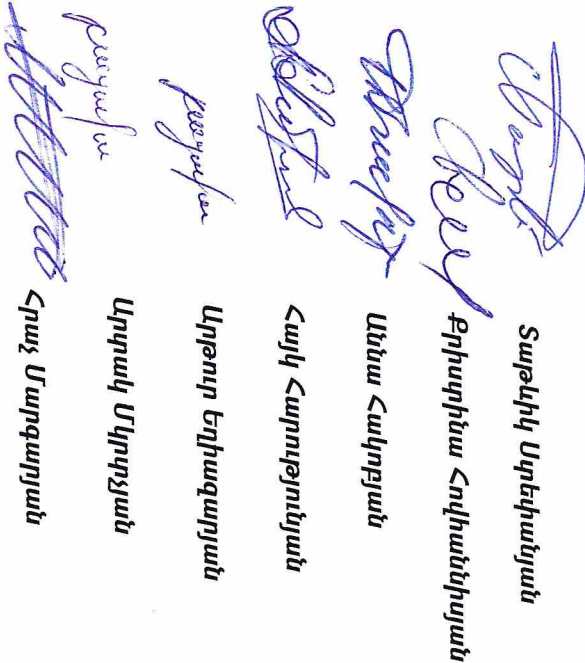 Տաթևիկ Ստեփանյան
Քրիստինա Հովհաննիսյան
Աննա Հակոբյան
Հայկ Հարությունյան
բացակա Արթուր Եղիազարյան
բացակա Արտակ Մկրտչյան
Հրաչ Մարգարյան